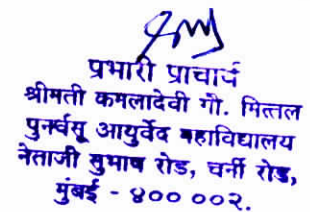 प्रभारी प्राचार्य
श्रीमती कमलादेवी गौ. मित्तल
पुनर्वसू आयुर्वेद महाविद्यालय
नेताजी सुभाष रोड, चर्नी रोड,
मुंबई - ४०० ००२.